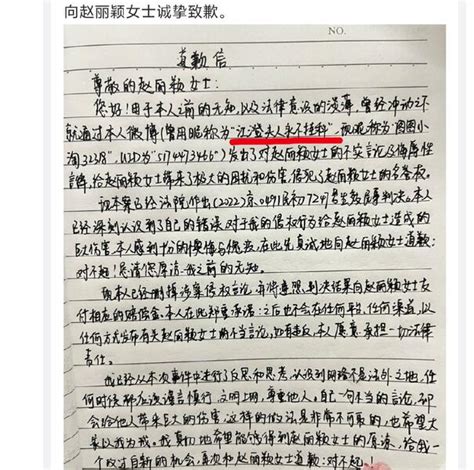 向赵丽颖女士诚挚致歉。
NO.
道歉信
尊敬的赵丽颖女士:
您好!由于本人之前的无知,以及法律意识的浅薄,曾经冲动之下
就通过本人微博(曾用昵称为"沈澄夫人永不挂科",现昵称为"图图小
淘3238",UID为"5174973466")发出了对赵丽颖女士的不实言论及侮辱性
言辞,给赵丽颖女士带来了极大的困扰和伤害,侵犯了赵丽颖女士的名誉权。
该本案已经法院作出(2022)京0491民初7279号生效民事判决。本人
已经深刻认识到了自己的错误,对于我的侵权行为给赵丽颖女士造成的
巨大伤害本人感到十分的懊悔与愧疚,在此先真诚地向赵丽颖女士道歉:
对不起!恳请您原谅我之前的无知。
现本人已经删掉涉案侵权言论,并将遵照判决结果向赵丽颖女士支
付相应的赔偿金。本人在此郑重承诺:之后也不会在任何平台,任何渠道,以
任何方式发布有关赵丽颖女士的不当言论,如有违反,本人愿意承担一切法律
责任。
我已经从本次事件中进行了反思和思考,认识到网络不是法外之地,任
何时候都应该谨言慎行,文明上网,尊重他人。自己一句不当的言论,却
会给他人带来巨大的伤害,这样的做法是非常不可取的,也希望大
家以我为戒。我真切地希望能够得到赵丽颖女士的原谅,给我一
个改过自新的机会,再次和赵丽颖女士道歉:对不起!